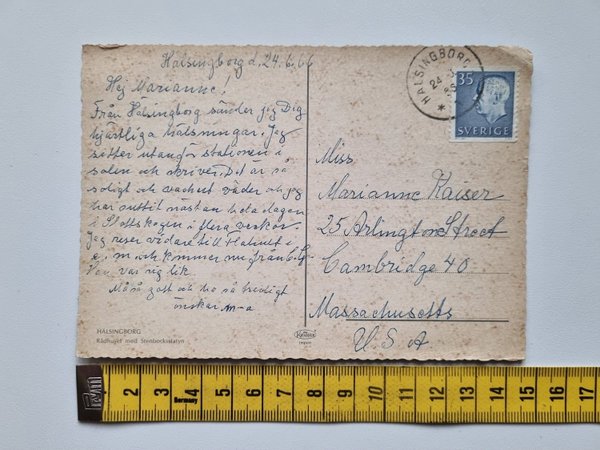 Halsingborg d. 24.6.66
Hej Marianne,
Från Halsingborg sänder jag Dig
hjärtliga hälsningar. Jag
sitter utanför stationen i
solen och skriver. Det är så
soligt och vackert väder och jag
har suttit nästan hela dagen
i Slottskogen
Jag reser vidare till
e. m och kommer
var sig lik
Må så gott och ha så trevligt
önskar
HÄLSINGBORG
Rådhuset med Stenbocksstatyn
HÄLSINGBORG
24
35
SVERIGE
Miss
Marianne Kaiser
25 Arlington Street
Cambridge 40
Massachusetts
U S A
2 3 4 5 6 7 8 9 10 11 12 13 14 15 16 17
Germany